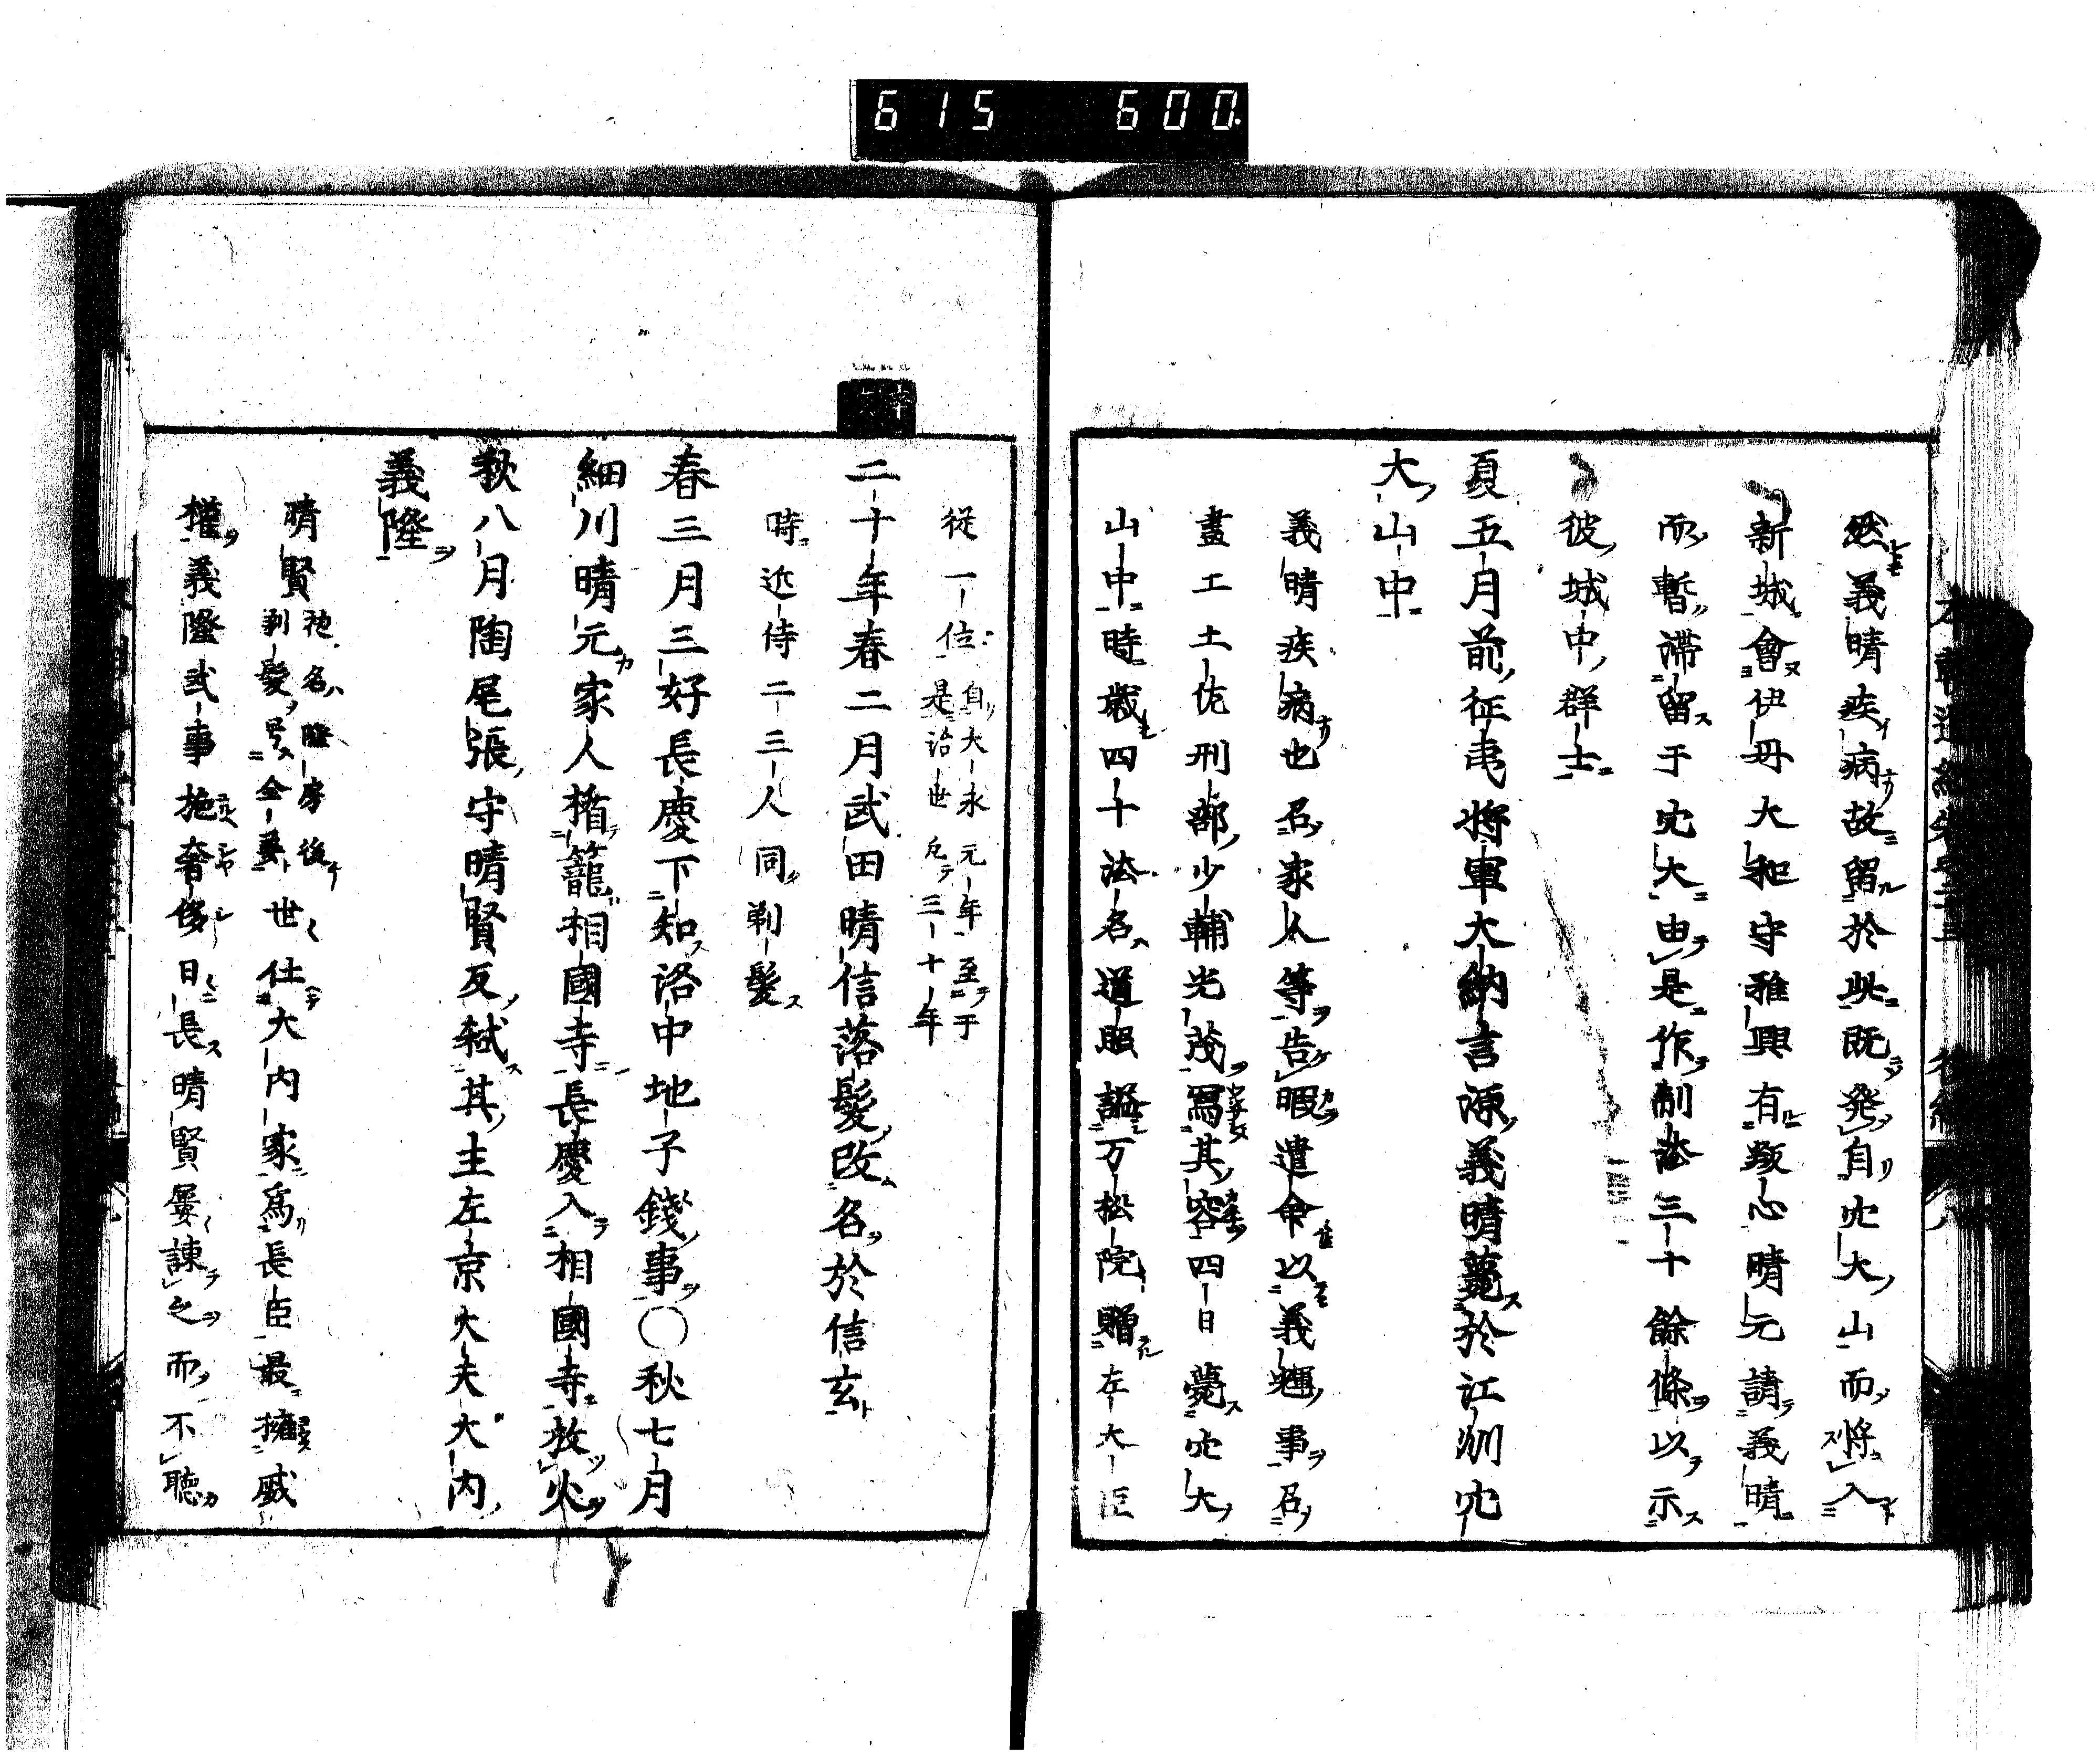 615 600.
然義晴疾病故留於此既発自穴大山而将入
新城會伊丹大和守雅興有叛心晴元請義晴
而暫滞留于穴大由是作制法三十餘條以示
彼城中群士
夏五月前征夷将軍大納言源義晴薨於江州穴
大山中
義晴疾病也召家人等告暇遣命以義輝事召
畫工土佐刑部少輔光茂寫其容四日薨穴大
山中時歳四十法名道照謚万松院贈左大臣
從一位自大永元年至于
是治世凡三十年
二十年春二月武田晴信落髮改名於信玄
時近侍二三人同剃髮
春三月三好長慶下知洛中地子錢事〇秋七月
細川晴元家人楯籠相國寺長慶入相國寺放火
秋八月陶尾張守晴賢反弑其主左京大夫大内
義隆
晴賢初名隆房後
剃髮号全薑世仕大内家為長臣最擁威
權義隆武事施奢侈日長晴賢屡諌之而不聴